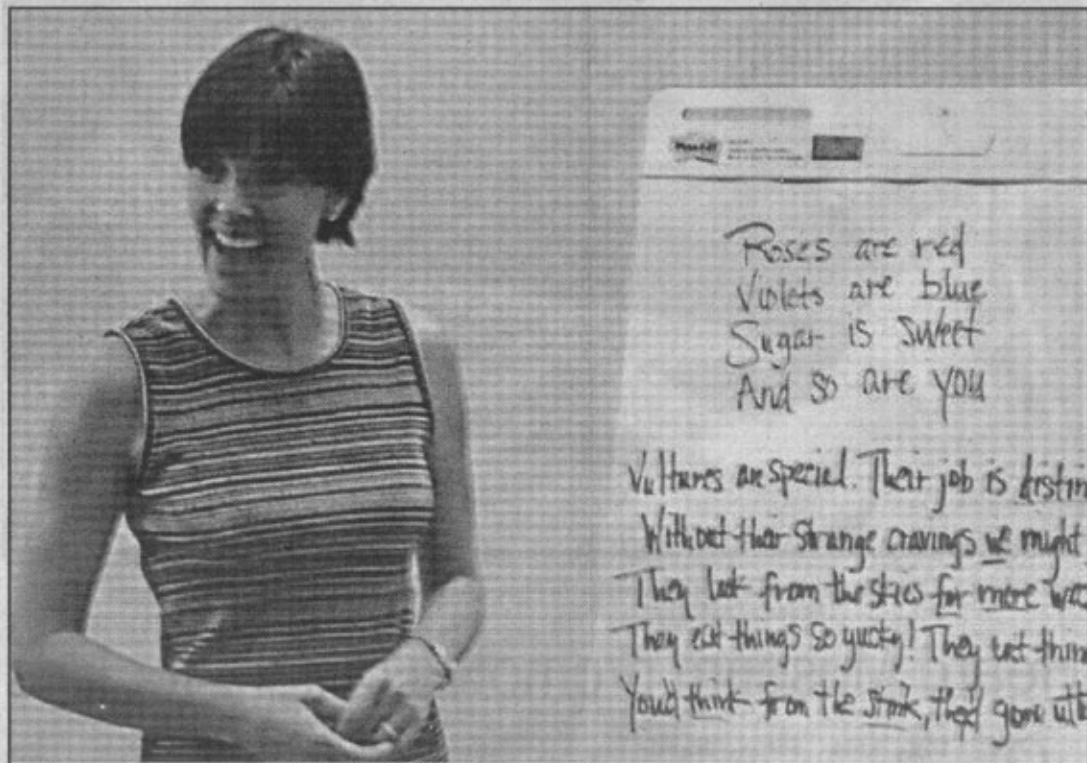 Roses are red
Violets are blue
Sugar is sweet
And so are you
Vultures are special. Their job is
Without their strange cravings we might
They look from the skies for more
They eat things so yucky! They eat
You'd think from the stink, they'd gone